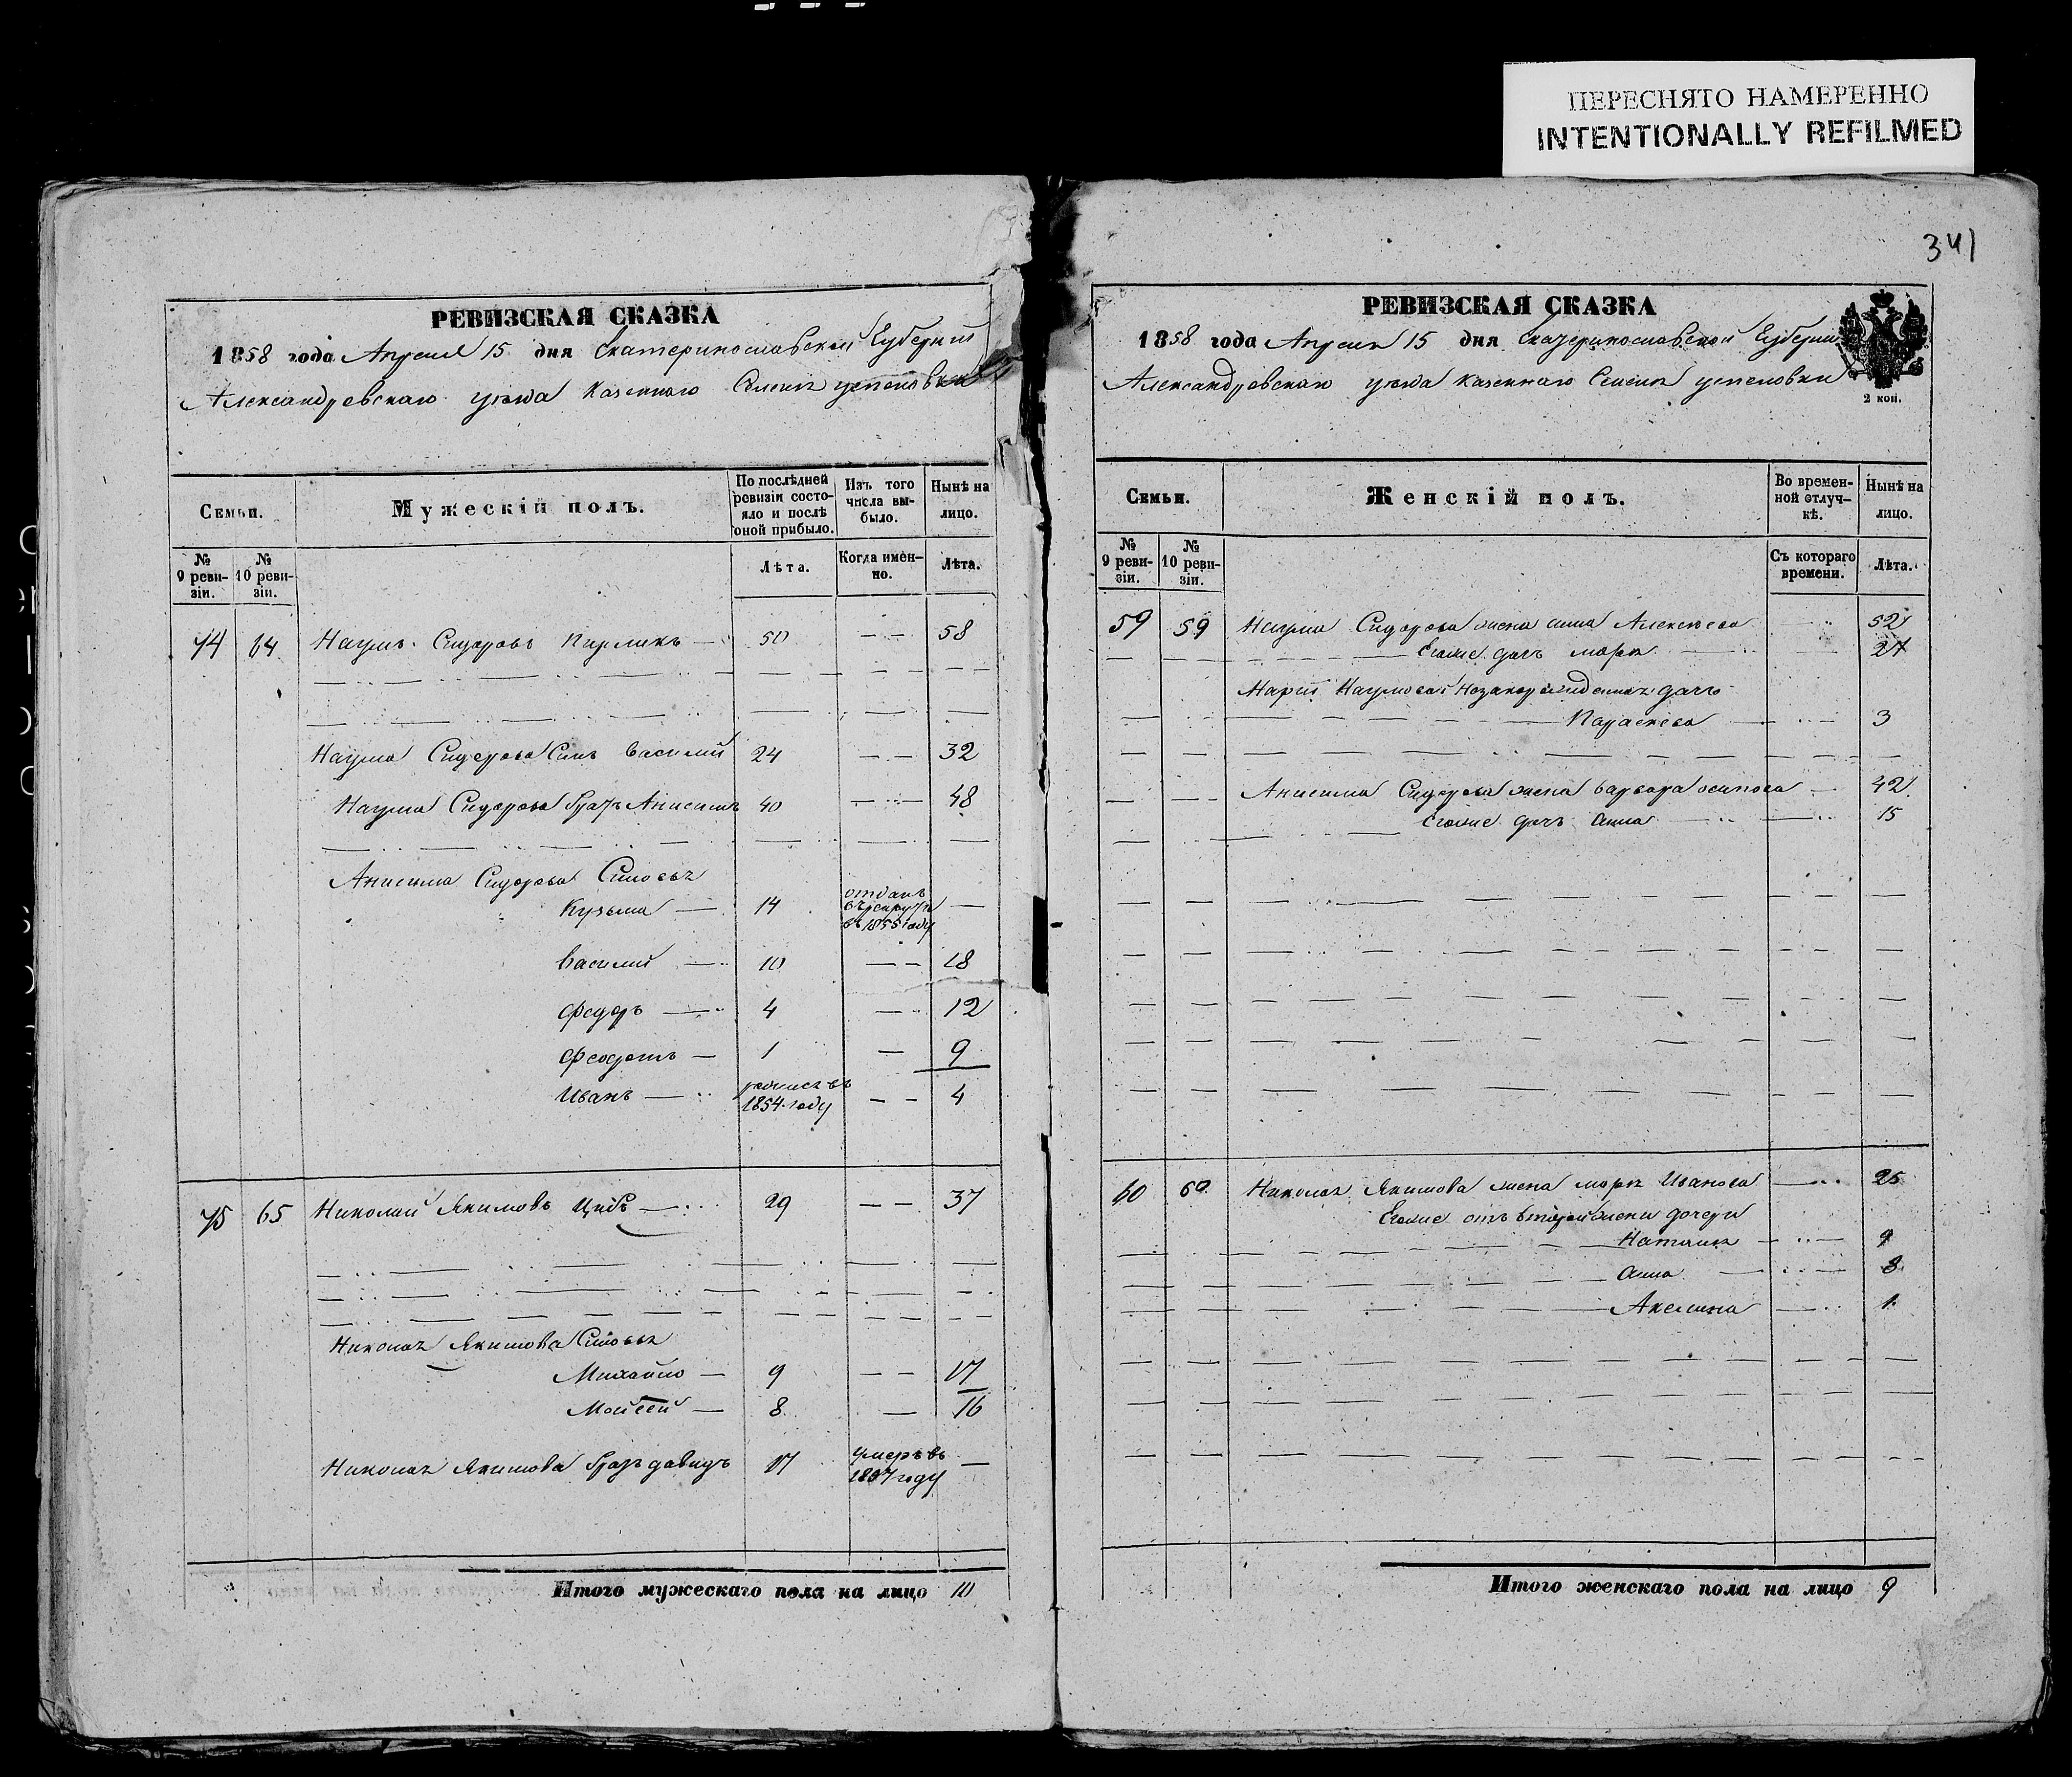 ПЕРЕСНЯТО НАМЕРЕННО
INTENTIONALLY REFILMED
341
РЕВИЗСКАЯ СКАЗКА
1858 года Апреля 15 дня Екатеринославской Губернии
Александровскаго уезда Казеннаго Селенія
Семьи.
Мужескій полъ.
По послѣдней ревизіи состояло и послѣ оной прибыло.
Изъ того числа выбыло.
Нынѣ на лицо.
№ 9 ревизіи.
№ 10 ревизіи.
Лѣта.
Когда именно.
Лѣта.
74 64 Наумъ Сидоровъ 50 58
Наума Сидорова Сынъ Василий 24 32
Наума Сидорова братъ Анисимъ 40 48
Анисима Сидорова Сыновья
Кузьма 14 отданъ въ рекруты въ 1855 году
Василий 10 18
Федоръ 4 12
Феодотъ 1 9
Иванъ родился въ 1854 году 4
75 65 Николай Якимовъ 29 37
Николая Якимова Сыновья
Михайло 9 17
Моисей 8 16
Николая Якимова братъ давидъ 17 умеръ въ 1857 году
Итого мужескаго пола на лицо 10
РЕВИЗСКАЯ СКАЗКА
1858 года Апреля 15 дня Екатеринославской Губернии
Александровскаго уезда Казеннаго Селенія
2 коп.
Семьи.
Женскій полъ.
Во временной отлучкѣ.
Нынѣ на лицо.
№ 9 ревизіи.
№ 10 ревизіи.
Съ котораго времени.
Лѣта.
59 59 Наума Сидорова жена анна Алексеева 52
Егоже дочь марья 27
Марьи Наумовой дочь
Параскева 3
Анисима Сидорова жена варвара осипова 42
Егоже дочь анна 15
60 60 Николая Якимова жена марья Иванова 25
Егоже отъ жены дочери
Наталья 9
анна 8
Акелина 1
Итого женскаго пола на лицо 9